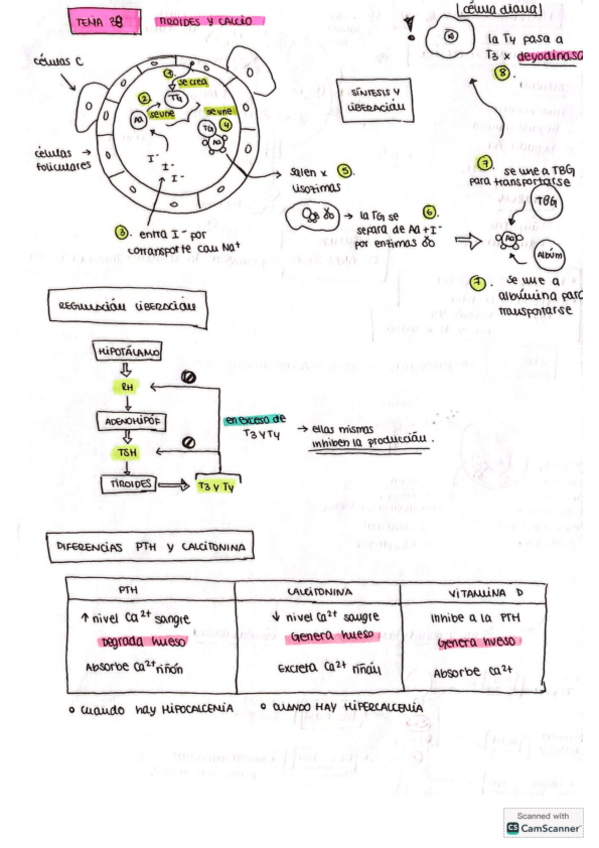 TEMA 38 TIROIDES Y CALCIO
célula diana
la T4 pasa a
T3 x deyodinasa
8.
células C
1. se crea
TG
2.
Aa
se une
se une
TG
4
Aa
I-
I-
I-
células
foliculares
SÍNTESIS Y
LIBERACIÓN
3. entra I- por
cotransporte con Na+
salen x 5.
lisosomas
→ la TG se 6.
separa de Aa + I-
por enzimas
7. se une a TBG
para transportarse
TBG
Aa
Albúm
7. se une a
albúmina para
transportarse
REGULACIÓN LIBERACIÓN
HIPOTÁLAMO
RH
ADENOHIPÓF
TSH
TIROIDES
T3 Y T4
en exceso de
T3 Y T4
→ ellas mismas
inhiben la producción.
DIFERENCIAS PTH Y CALCITONINA
PTH CALCITONINA VITAMINA D
↑ nivel Ca2+ sangre ↓ nivel Ca2+ sangre Inhibe a la PTH
Degrada hueso Genera hueso Genera hueso
Absorbe Ca2+ riñón Excreta Ca2+ riñón Absorbe Ca2+
o cuando hay HIPOCALCEMIA o CUANDO HAY HIPERCALCEMIA
Scanned with
CS CamScanner